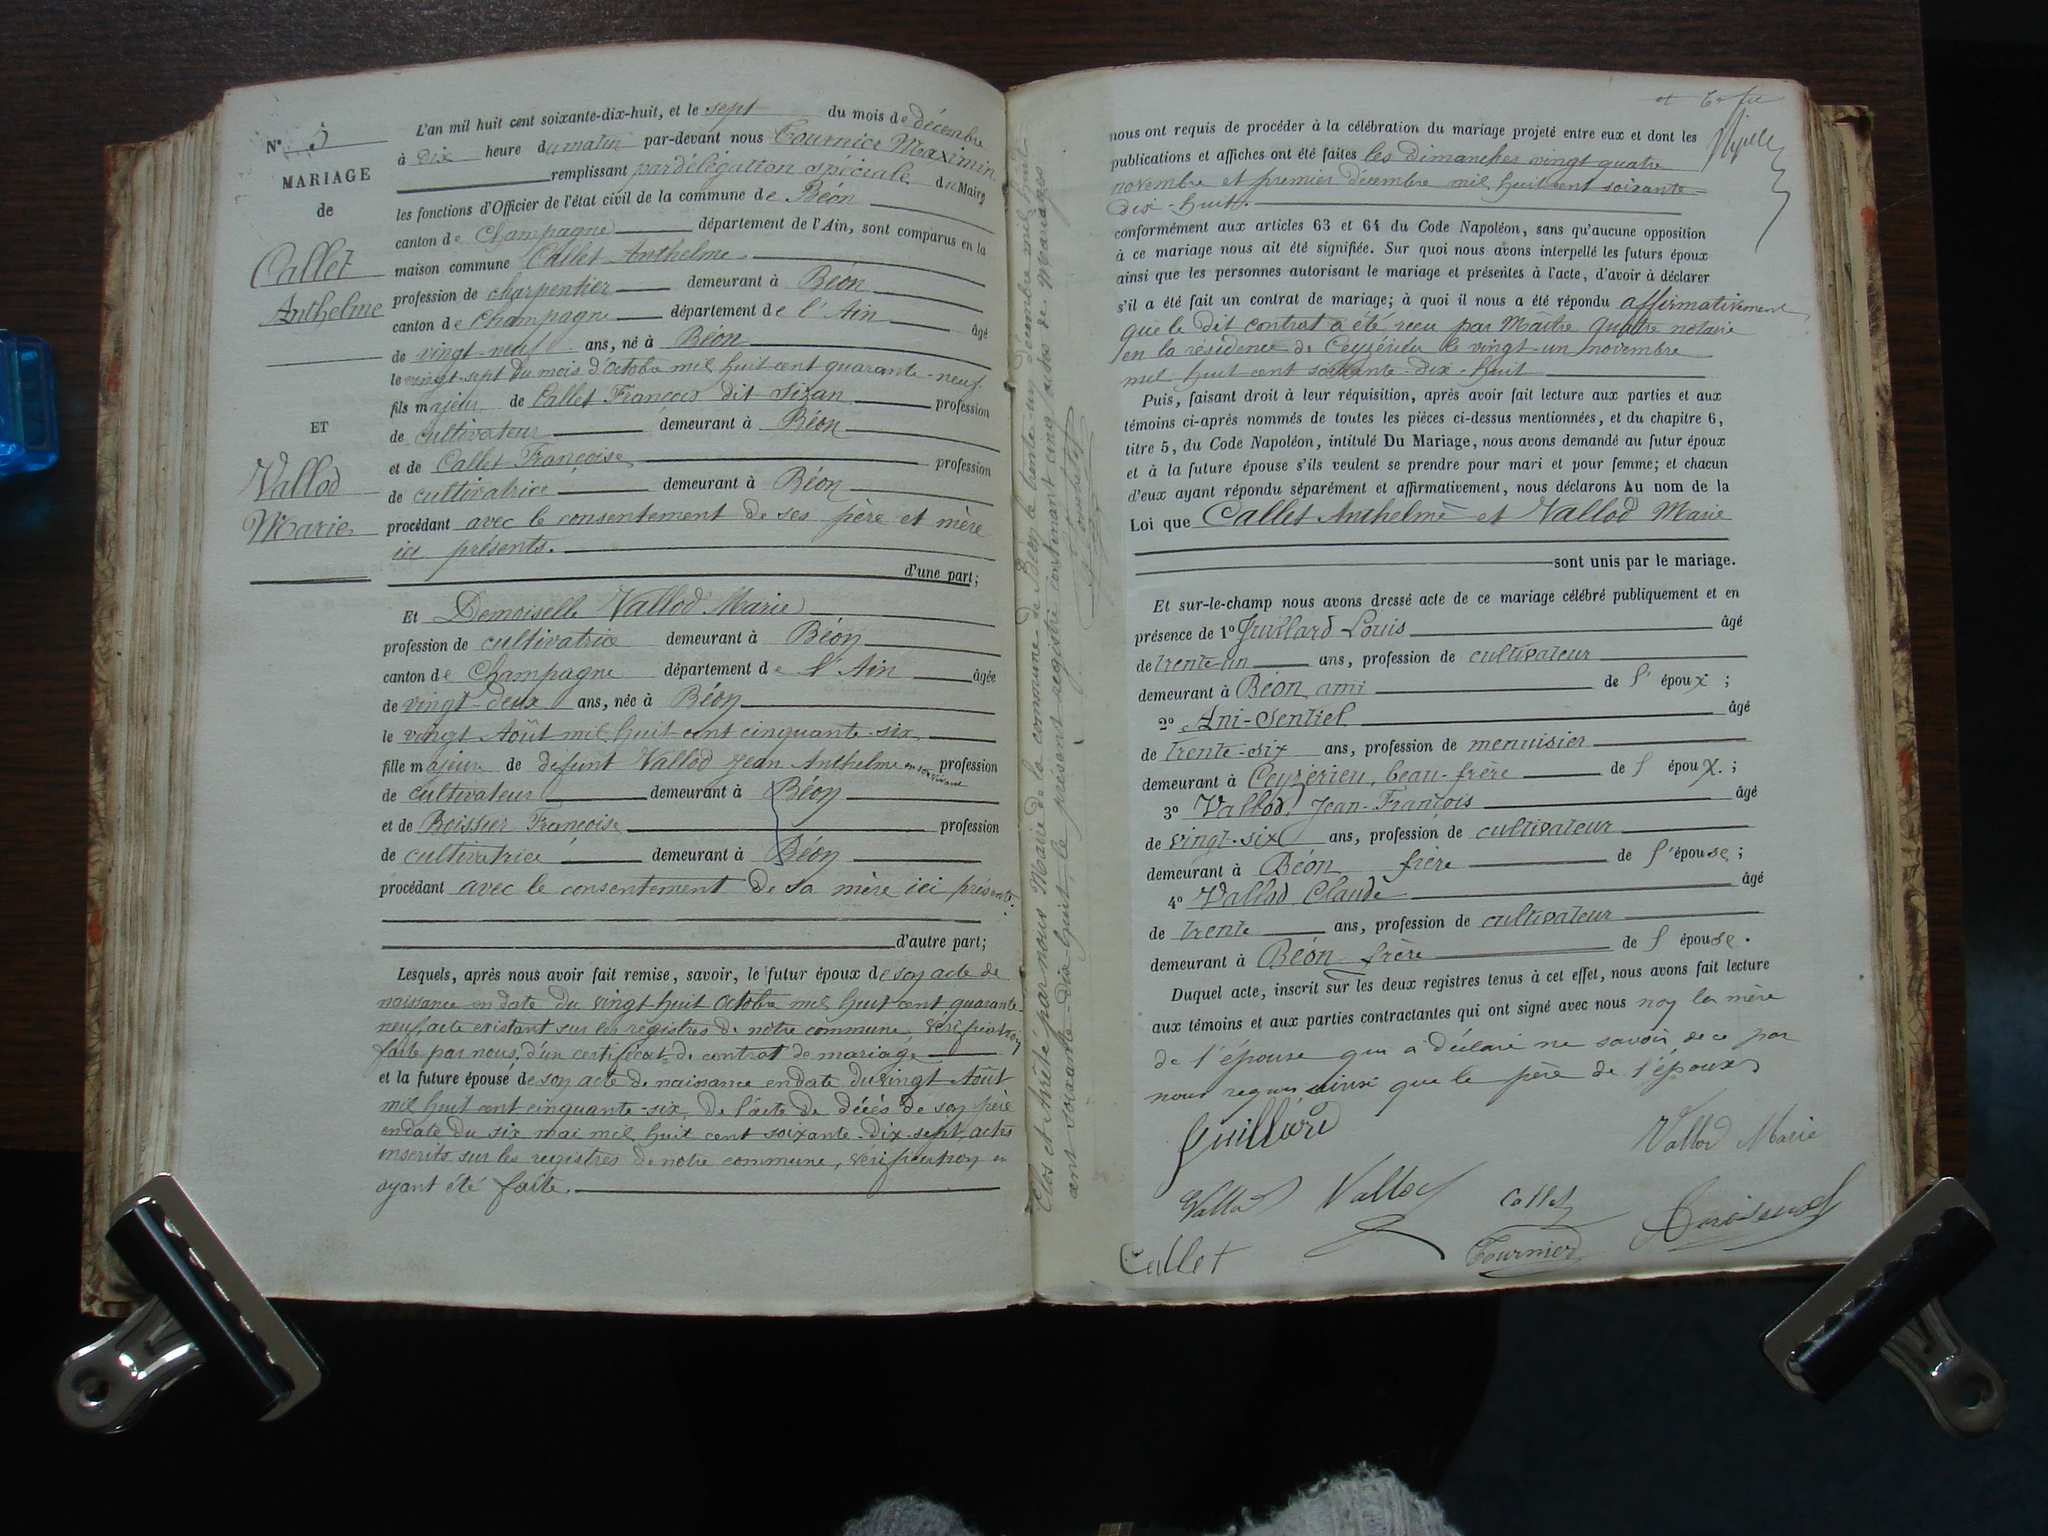 N° 5
MARIAGE
de
Callet
Anthelme
ET
Vallod
Marie
L'an mil huit cent soixante-dix-huit, et le sept du mois de décembre
à dix heure du matin par-devant nous Tournier Maximin
remplissant par délégation spéciale du Maire
les fonctions d'Officier de l'état civil de la commune de Béon
canton de Champagne département de l'Ain, sont comparus en la
maison commune Callet Anthelme
profession de charpentier demeurant à Béon
canton de Champagne département de l'Ain âgé
de vingt-neuf ans, né à Béon
le vingt-sept du mois d'Octobre mil huit cent quarante-neuf
fils majeur de Callet François dit Sizan profession
de cultivateur demeurant à Béon
et de Callet Françoise profession
de cultivatrice demeurant à Béon
procédant avec le consentement de ses père et mère
ici présents.
d'une part;
Et Demoiselle Vallod Marie
profession de cultivatrice demeurant à Béon
canton de Champagne département de l'Ain âgée
de vingt-deux ans, née à Béon
le vingt Août mil huit cent cinquante-six
fille majeure de défunt Vallod Jean Anthelme en son vivant profession
de cultivateur demeurant à Béon
et de Boissier Françoise profession
de cultivatrice demeurant à Béon
procédant avec le consentement de sa mère ici présente.
d'autre part;
Lesquels, après nous avoir fait remise, savoir, le futur époux de son acte de
naissance en date du vingt-huit Octobre mil huit cent quarante
neuf, acte existant sur les registres de notre commune, vérification
faite par nous, d'un certificat de contrat de mariage
et la future épouse de son acte de naissance en date du vingt Août
mil huit cent cinquante-six, de l'acte de décès de son père
en date du six mai mil huit cent soixante-dix-sept, actes
inscrits sur les registres de notre commune, vérification en
ayant été faite.
Clos et Arrêté par nous Maire de la commune de Béon le trente-un décembre mil huit
cent soixante-dix-huit, le présent registre contenant cinq actes de Mariages
nous ont requis de procéder à la célébration du mariage projeté entre eux et dont les
publications et affiches ont été faites les dimanches vingt quatre
novembre et premier décembre mil huit cent soixante-
dix-huit.
conformément aux articles 63 et 64 du Code Napoléon, sans qu'aucune opposition
à ce mariage nous ait été signifiée. Sur quoi nous avons interpellé les futurs époux
ainsi que les personnes autorisant le mariage et présentes à l'acte, d'avoir à déclarer
s'il a été fait un contrat de mariage; à quoi il nous a été répondu affirmativement
que le dit contrat a été reçu par Maître notaire
en la résidence de Ceyzérieu le vingt-un novembre
mil huit cent soixante-dix-huit
Puis, faisant droit à leur réquisition, après avoir fait lecture aux parties et aux
témoins ci-après nommés de toutes les pièces ci-dessus mentionnées, et du chapitre 6,
titre 5, du Code Napoléon, intitulé Du Mariage, nous avons demandé au futur époux
et à la future épouse s'ils veulent se prendre pour mari et pour femme; et chacun
d'eux ayant répondu séparément et affirmativement, nous déclarons Au nom de la
Loi que Callet Anthelme et Vallod Marie
sont unis par le mariage.
Et sur-le-champ nous avons dressé acte de ce mariage célébré publiquement et en
présence de 1° Guillard Louis âgé
de trente-un ans, profession de cultivateur
demeurant à Béon ami de l'époux;
2° Ani-Sentiel âgé
de trente-six ans, profession de menuisier
demeurant à Ceyzérieu, beau-frère de l'époux.;
3° Vallod Jean-François âgé
de vingt-six ans, profession de cultivateur
demeurant à Béon frère de l'épouse;
4° Vallod Claude âgé
de trente ans, profession de cultivateur
demeurant à Béon frère de l'épouse.
Duquel acte, inscrit sur les deux registres tenus à cet effet, nous avons fait lecture
aux témoins et aux parties contractantes qui ont signé avec nous non la mère
de l'épouse qui a déclaré ne savoir de ce par
nous requis ainsi que le père de l'époux
Guillard
Vallod Marie
Vallod
Vallod
Callet
Callet
Tournier